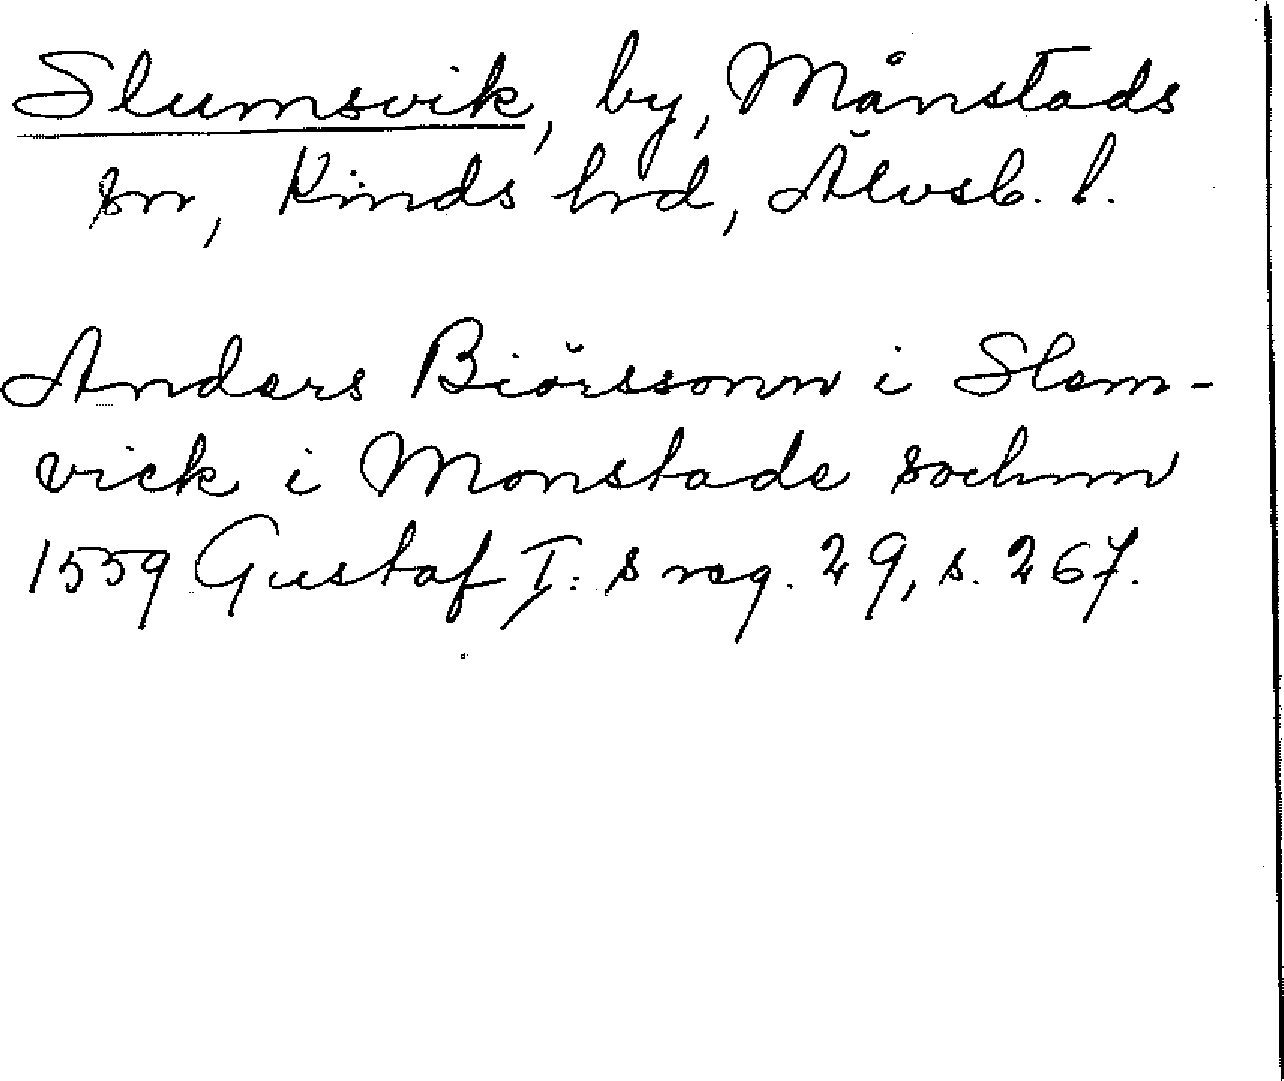 Slumsvik, by, Månstads
sn, Kinds hd, Älvsb. l.
Anders Biörssonn i Slem-
vick i Monstade sochnn
1559 Gustaf I:s reg. 29, s. 267.